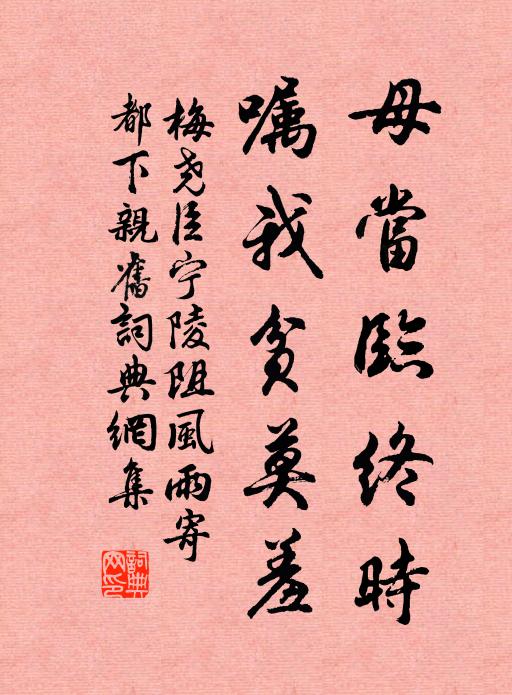 母當臨终時
嘱我貧莫羞
梅尧臣宁陵阻風雨寄
都下親舊詞典網集
詞典网印